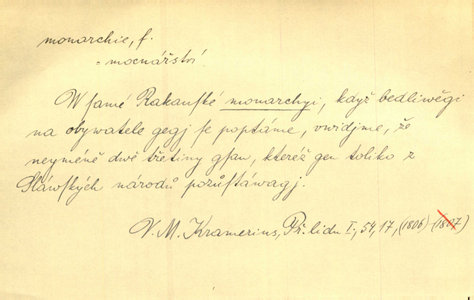 monarchie, f.
= mocnářství.
W samé Rakauské monarchyi, když bedliwěgi
na obywatele gegj se poptáme, uwidjme, že
neyméně dwě třetiny gsau, kteréž gen toliko z
Sláwských národů pozůstáwagj.
V. M. Kramerius, Př. lidu I, 54, 17, (1806) (1807)